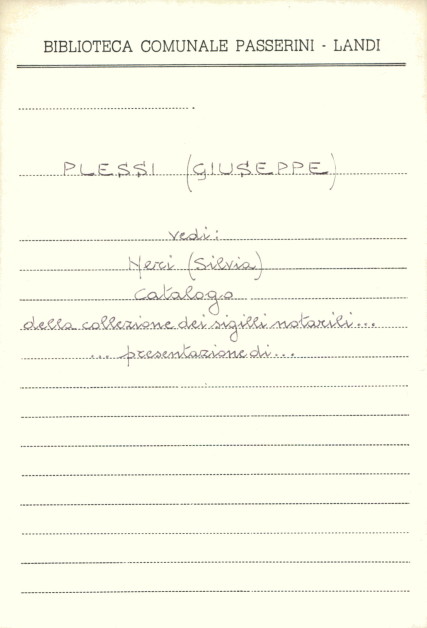 BIBLIOTECA COMUNALE PASSERINI - LANDI
PLESSI (GIUSEPPE)
vedi:
Neri (Silvia)
Catalogo
della collezione dei sigilli notarili...
... presentazione di...